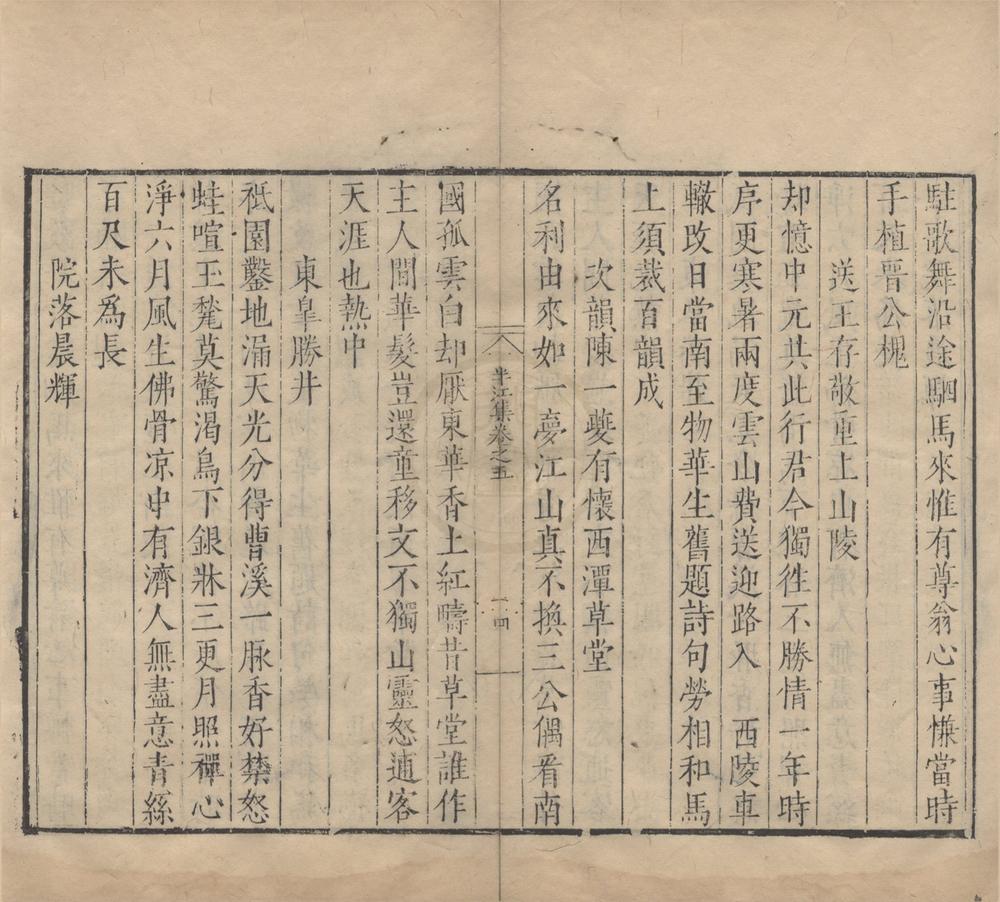 駐歌舞沿途駟馬來惟有尊翁心事慊當時
手植晉公槐
送王存敬重上山陵
却憶中元共此行君今獨徃不勝情一年時
序更寒暑兩度雲山費送迎路入 西陵車
轍攺日當南至物華生舊題詩句勞相和馬
上須裁百韻成
次韻陳一夔有懷西潭草堂
名利由來如一夢江山真不換三公偶看南
半江集卷之五
十四
國孤雲白却厭東華香土紅疇昔草堂誰作
主人間華髮豈還童移文不獨山靈怒逋客
天涯也熱中
東皐勝井
祇園鑿地漏天光分得曹溪一脉香好禁怒
蛙喧玉甃莫驚渴鳥下銀牀三更月照禪心
淨六月風生佛骨凉中有濟人無盡意青絲
百尺未爲長
院落晨輝